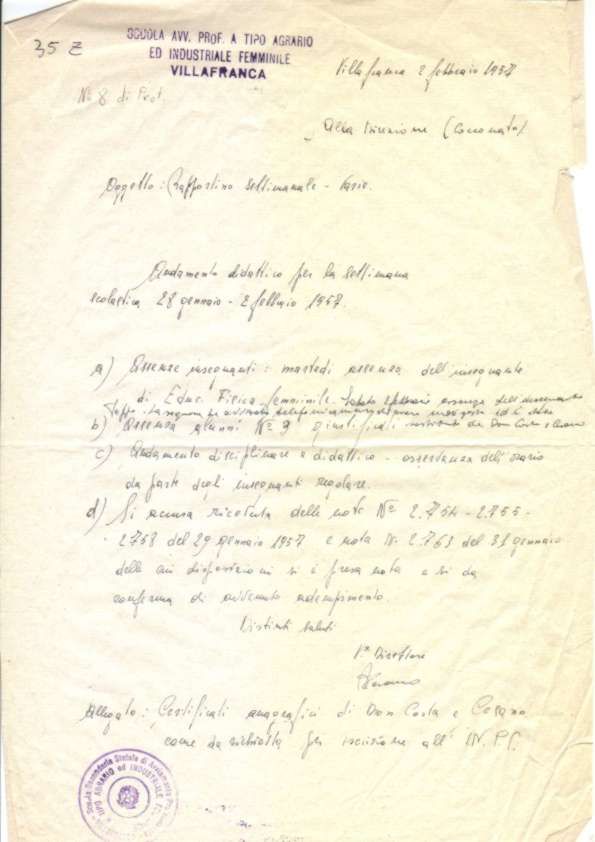 35 Z
SCUOLA AVV. PROF. A TIPO AGRARIO
ED INDUSTRIALE FEMMINILE
VILLAFRANCA
Villafranca 2 febbraio 1957
No 8 di Prot.
Alla Direzione (Cocconato)
Oggetto: Rapportino settimanale - Varie.
Andamento didattico per la settimana
scolastica 28 gennaio - 2 febbraio 1957.
a) Assenze insegnanti: martedi assenza dell'insegnante
di Educ. Fisica femminile. Sabato 2 febbraio assenza dell'insegnante
b) Assenza alunni No 9 giustificati sostituito da Don Costa e
c) Andamento disciplinare e didattico - osservanza dell'orario
da parte degli insegnanti regolare.
d) Si accusa ricevuta delle note No 2.754 - 2.755 -
2758 del 29 gennaio 1957 e nota N. 2.763 del 31 gennaio
delle cui disposizioni si è presa nota e si da
conferma di avvenuto adempimento.
Distinti saluti
Direttore
Allegato: Certificati anagrafici di Don Costa e
come da richiesta per iscrizione all'IN.PS.
Scuola Secondaria Statale di Avviamento
TIPO AGRARIO ed INDUSTRIALE